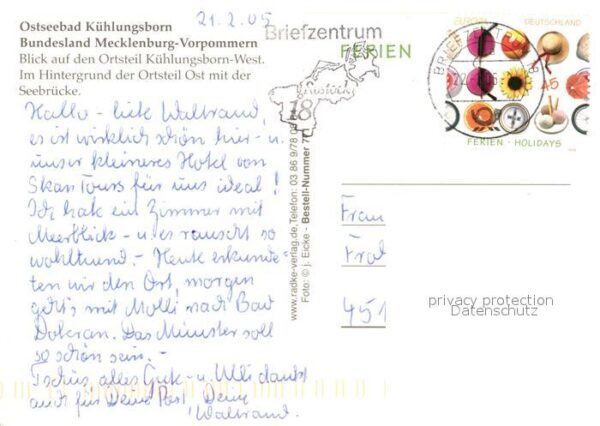 Ostseebad Kühlungsborn
Bundesland Mecklenburg-Vorpommern
Blick auf den Ortsteil Kühlungsborn-West.
Im Hintergrund der Ortsteil Ost mit der
Seebrücke.
21.2.05
Hallo - liebe Waltraud,
es ist wirklich schön hier - u.
unser kleineres Hotel von
Skan Tours für uns ideal!
Ich hab ein Zimmer mit
Meerblick - u. es rauscht so
wohltuend. - Heute erkunde-
ten wir den Ort, morgen
geht's mit Molli nach Bad
Doberan. Das Münster soll
so schön sein. -
Tschüs, alles Gute - u. Ulli dankt
auch für Deine Post, Deine
Waltraud.
www.radke-verlag.de, Telefon: 03 86 9/78 0
Foto: © j. Eicke - Bestell-Nummer 7
Briefzentrum
18
FERIEN
EUROPA DEUTSCHLAND
BRIEFZENTRUM 18
45
FERIEN · HOLIDAYS
Frau
451
privacy protection
Datenschutz